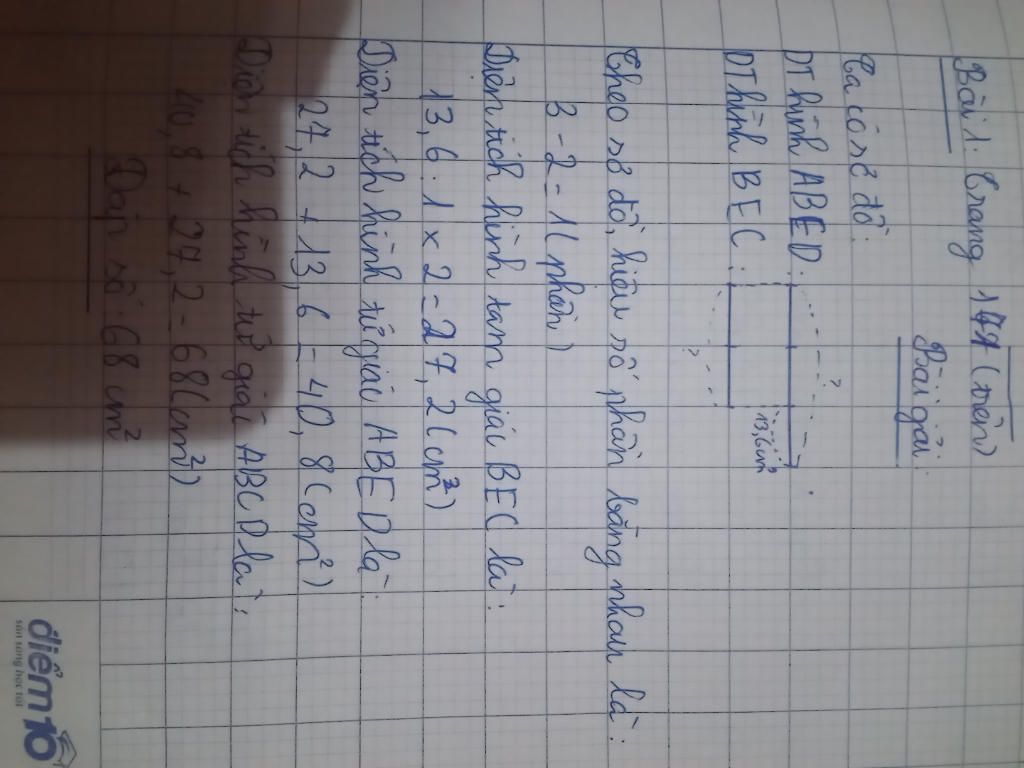 Bài 1. Trang 171 (trên)
Bài giải:
Ta có sơ đồ:
DT hình ABED:
?
13,6 cm²
DT hình BEC:
?
Theo sơ đồ, hiệu số phần bằng nhau là:
3 - 2 = 1 (phần)
Diện tích hình tam giác BEC là:
13,6 : 1 x 2 = 27,2 (cm²)
Diện tích hình tứ giác ABED là:
27,2 + 13,6 = 40,8 (cm²)
Diện tích hình tứ giác ABCD là:
40,8 + 27,2 = 68 (cm²)
Đáp số: 68 cm²
điểm 10
sẵn sàng học tốt